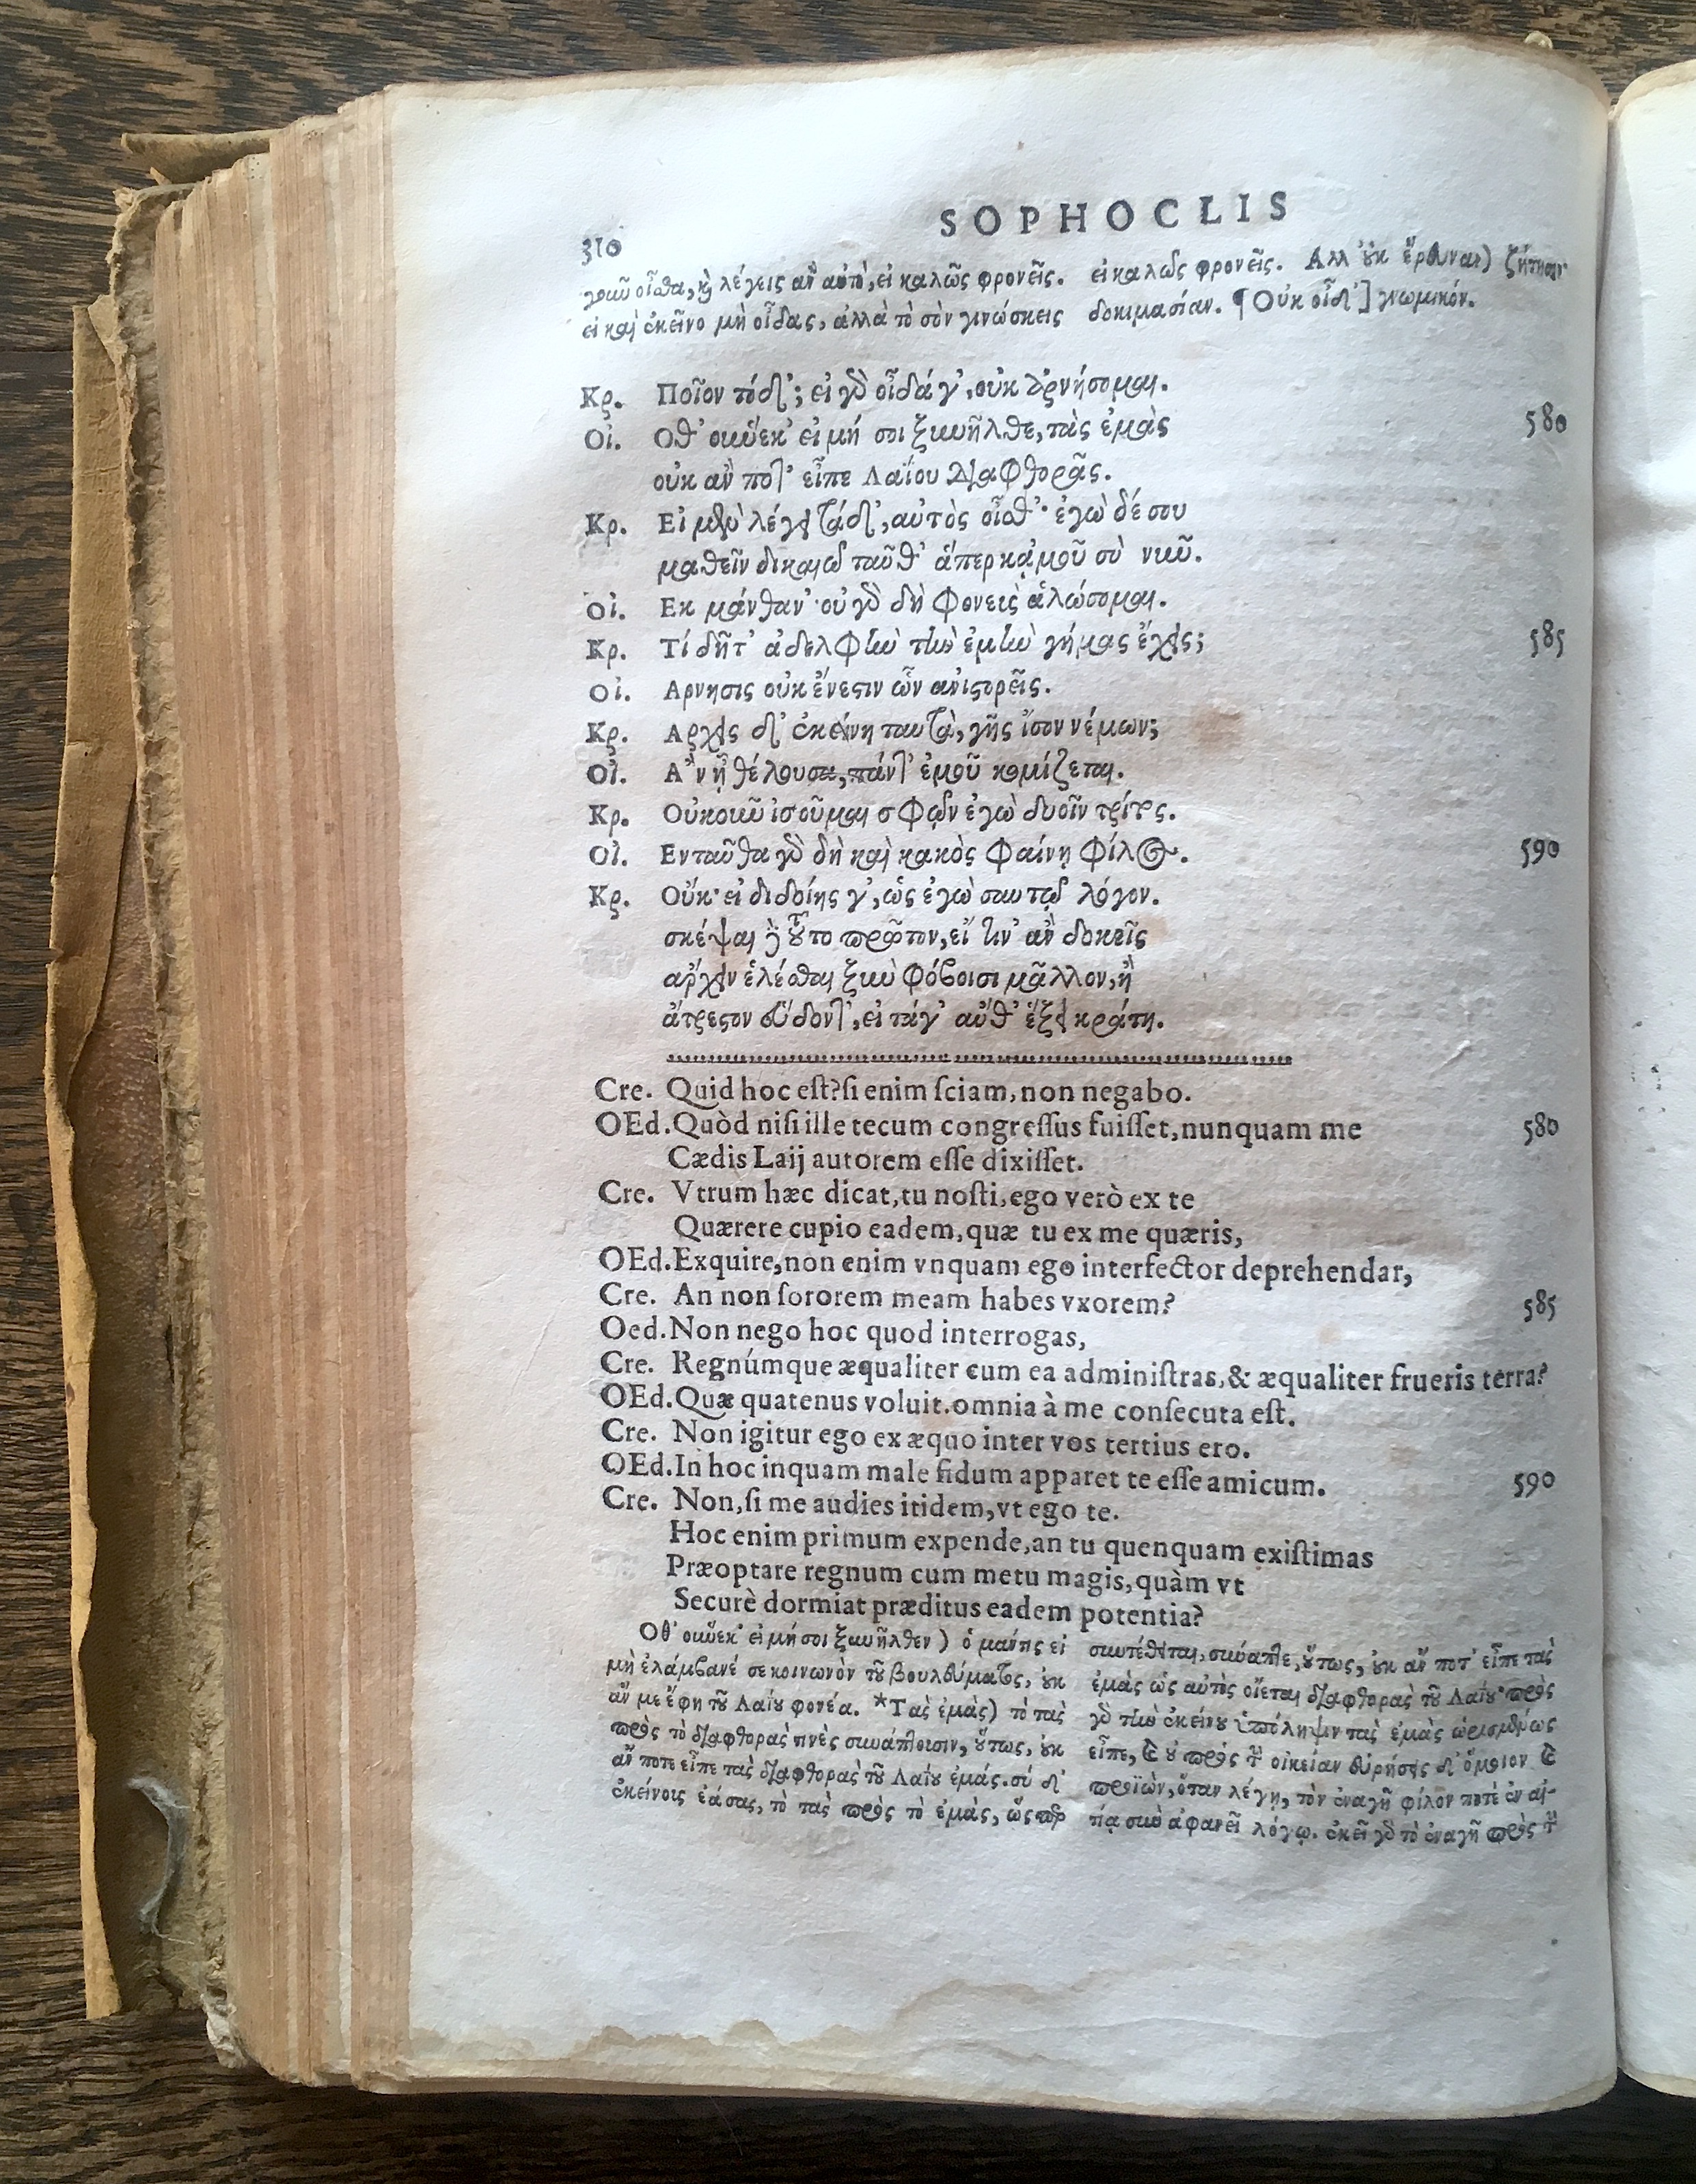 SOPHOCLIS
310
οἶσθα, καὶ λέγεις ἂν αὐτὸ, εἰ καλῶς φρονεῖς.
εἰ καὶ ἐκεῖνο μὴ οἶδας, ἀλλὰ τὸ σὸν γινώσκεις
εἰ καλῶς φρονεῖς. Αλλ' οὐκ
δοκιμασίαν. ¶ Οὐκ οἶδ'] γνωμικόν.
Κρ. Ποῖον τόδ'; εἰ γὰρ οἶδά γ', οὐκ ἀρνήσομαι.
Οἰ. Οθ' οὕνεκ' εἰ μή σοι ξυνῆλθε, τὰς ἐμὰς 580
οὐκ ἂν ποτ' εἶπε Λαΐου διαφθορᾶς.
Κρ. Εἰ μὲν λέγει τάδ', αὐτὸς οἶσθ'· ἐγὼ δέ σου
μαθεῖν δικαιῶ ταῦθ' ἅπερ κᾀμοῦ σὺ νῦν.
Οἰ. Εκ μάνθαν'· οὐ γὰρ δὴ φονεὺς ἁλώσομαι.
Κρ. Τί δῆτ' ἀδελφὴν τὴν ἐμὴν γήμας ἔχεις; 585
Οἰ. Αρνησις οὐκ ἔνεστιν ὧν ἀνιστορεῖς.
Κρ. Αρχεις δ' ἐκείνῃ ταυτὰ, γῆς ἴσον νέμων;
Οἰ. Α῍ν ᾖ θέλουσα, πάντ' ἐμοῦ κομίζεται.
Κρ. Οὐκοῦν ἰσοῦμαι σφῷν ἐγὼ δυοῖν τρίτος.
Οἰ. Ενταῦθα γὰρ δὴ καὶ κακὸς φαίνῃ φίλος. 590
Κρ. Οὔκ· εἰ διδοίης γ', ὡς ἐγὼ σαυτῷ λόγον.
σκέψαι δὲ τοῦτο πρῶτον, εἴ τιν' ἂν δοκεῖς
ἄρχειν ἑλέσθαι ξὺν φόβοισι μᾶλλον, ἢ
ἄτρεστον εὕδοντ', εἰ τάγ' αὔθ' ἕξει κράτη.
Cre. Quid hoc est? si enim sciam, non negabo.
OEd. Quòd nisi ille tecum congressus fuisset, nunquam me 580
Cædis Laij autorem esse dixisset.
Cre. Vtrum hæc dicat, tu nosti, ego verò ex te
Quærere cupio eadem, quæ tu ex me quæris,
OEd. Exquire, non enim vnquam ego interfector deprehendar,
Cre. An non sororem meam habes vxorem? 585
Oed. Non nego hoc quod interrogas,
Cre. Regnúmque æqualiter cum ea administras, & æqualiter frueris terra?
OEd. Quæ quatenus voluit. omnia à me consecuta est.
Cre. Non igitur ego ex æquo inter vos tertius ero.
OEd. In hoc inquam male fidum apparet te esse amicum. 590
Cre. Non, si me audies itidem, vt ego te.
Hoc enim primum expende, an tu quenquam existimas
Præoptare regnum cum metu magis, quàm vt
Securè dormiat præditus eadem potentia?
Οθ' οὕνεκ' εἰ μή σοι ξυνῆλθεν) ὁ μάντις εἰ
μὴ ἐλάμβανέ σε κοινωνὸν τοῦ βουλεύματος, οὐκ
ἄν με ἔφη τοῦ Λαΐου φονέα. *Τὰς ἐμὰς) τὸ τὰς
πρὸς τὸ διαφθορὰς τινὲς συνάπτουσιν, οὕτως, οὐκ
ἄν ποτε εἶπε τὰς διαφθορὰς τοῦ Λαΐου ἐμάς. σύ δ'
ἐκείνοις ἐάσας, τὸ τὰς πρὸς τὸ ἐμὰς,
συντέθειται, σύναπτε, οὕτως, οὐκ ἄν ποτ' εἶπε τὰς
ἐμὰς ὡς αὐτὸς οἴεται διαφθορὰς τοῦ Λαΐου· πρὸς
γὰρ τὴν ἐκείνου ὑπόληψιν τὰς ἐμὰς ὡρισμένως
εἶπε, καὶ οὐ πρὸς τὴν οἰκείαν δ' ὅμοιον καὶ
προϊὼν, ὅταν λέγῃ, τὸν ἐναγῆ φίλον ποτὲ ἐν αἰ-
τίᾳ σὺν ἀφανεῖ λόγῳ. ἐκεῖ γὰρ τὸ ἐναγῆ πρὸς τὴν